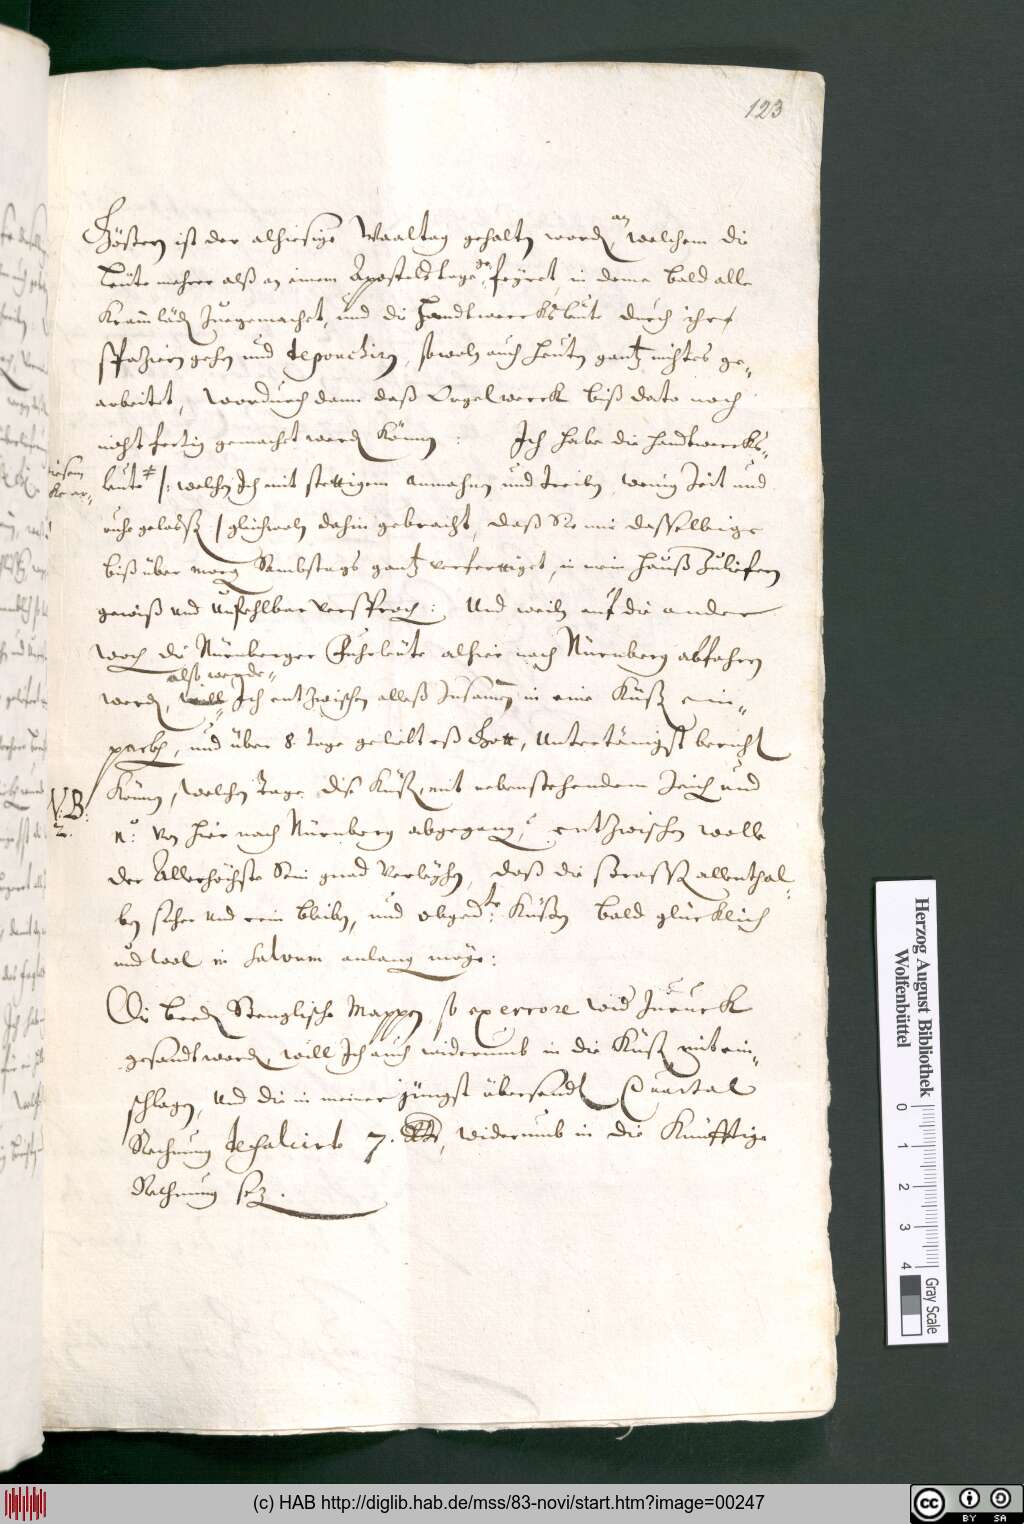 123
Göstern ist der alhiesige Waaltag gehalten worden, an welchem die
Leüte mehrer alß an einem Apostelstage gefeyret, in deme bald alle
Kramläden zuegemachet, und die Handtwercksleüte durch ihr
spatzieren gehen und depouchirn, sowoln auch heuten gantz nichtes ge-
arbeitet, wordurch dann daß Orgelwerck biß dato noch
nicht fertig gemachet werden können: Ich habe die Handtwercks-
leute /: welchen Ich mit stettigem anmahnen und treiben, wenig Zeit und
ruhe gelassen / gleichwoln dahin gebracht, daß Sie mir dasselbige
biß über morgen Sambstags gantz verfertiget, in mein Hauß zuliefern
gewiß und unfehlbar versprochen: Und weiln auf die andere
woch die Nürnberger Fuhrleüte alhier nach Nürnberg abfahren
werden, also werde
Ich entzwischen alleß zusamen in eine Küsten ein-
packhen, und über 8. tage geliebt eß Gott, Untertänigst berichten
können, welchen Tage diße Küsten, mit nebenstehendem Zeichen und
N.B.
2.
No: von hier nach Nürnberg abgegangen, entzwischen wolle
der Allerhöchste Sein gnad verleyhen, daß die strassen allenthal-
ben sicher und rein bleiben, und obged.te Küsten bald glücklich
und wol in salvum anlangen möge:
Die beeden Stenglische Mappen so ex errore wider zuruck
gesandt worden, will Ich auch widerumb in die Küsten mit ein-
schlagen, und die in meiner jüngst übersandten Quartal
Rechnung defalcirte 7. widerumb in die Künfftige
Rechnung setzen.
Herzog August Bibliothek
Wolfenbüttel
0 1 2 3 4
Gray Scale
(c) HAB http://diglib.hab.de/mss/83-novi/start.htm?image=00247
cc BY SA